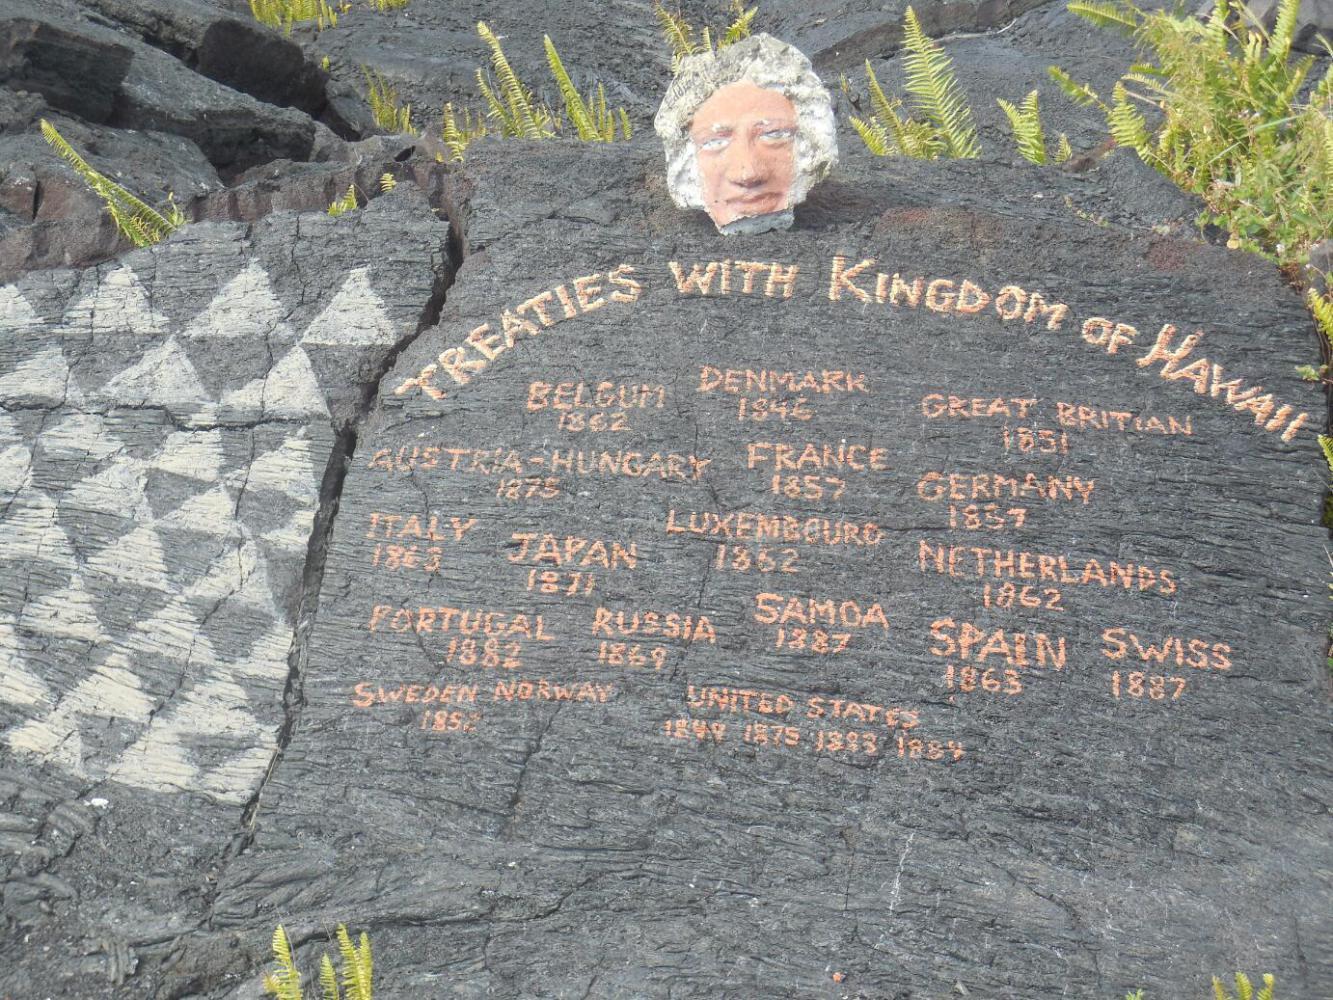 TREATIES WITH KINGDOM OF HAWAII
BELGUM
1862
DENMARK
1846
GREAT BRITIAN
1851
AUSTRIA-HUNGARY
1875
FRANCE
1857
GERMANY
1857
ITALY
1863
JAPAN
1871
LUXEMBOURG
1862
NETHERLANDS
1862
PORTUGAL
1882
RUSSIA
1869
SAMOA
1887
SPAIN
1863
SWISS
1887
SWEDEN NORWAY
1852
UNITED STATES
1849 1875 1883 1884